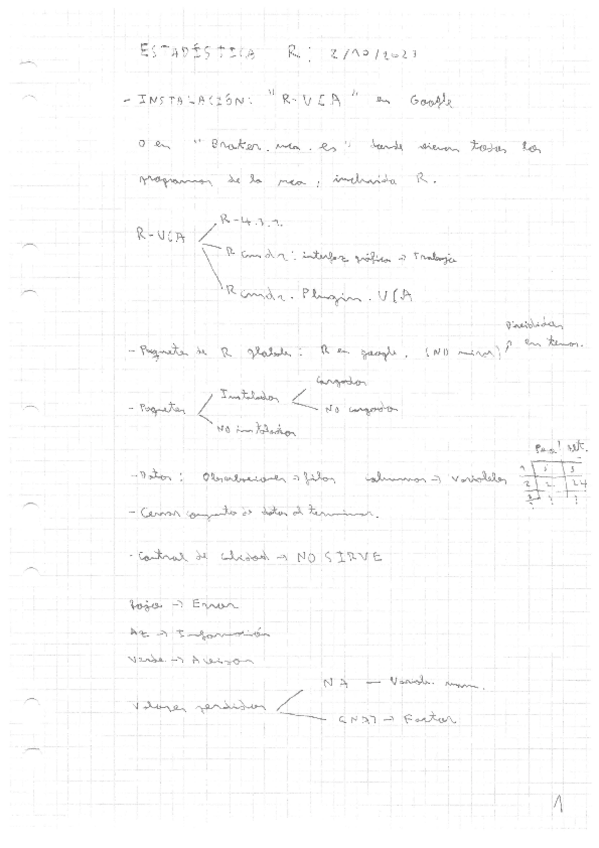 ESTADÍSTICA R: 2/10/2023
- INSTALACIÓN: "R-UCA" en Google
O en " .uca.es" donde vienen todos los
programas de la uca, incluida R.
R-UCA
R-4.3.1.
Rcmdr: interfaz gráfica → Trabajar
Rcmdr.Plugin.UCA
- Paquetes de R globales: R en google. (NO mirror) ↗ Divididos en temas.
- Paquetes
Instalados
Cargados
NO cargados
NO instalados
- Datos: Observaciones → filas columnas → variables
1
2 2 24
3 ? ?
- Cerrar conjunto de datos al terminar.
- Control de calidad → NO SIRVE
Rojo → Error
Az → Información
Verde → 
Valores perdidos
NA — Variab. num.
<NA> → Factor
1